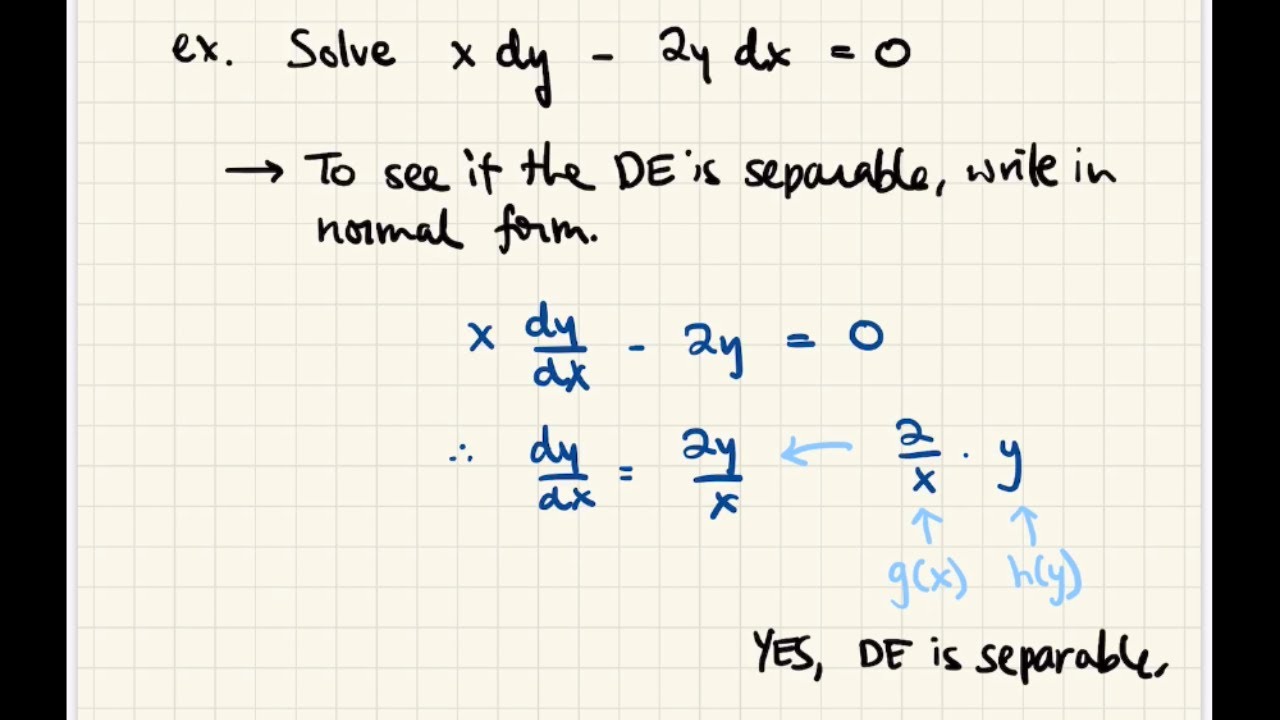 ex. Solve x dy - 2y dx = 0
→ To see if the DE is separable, write in
normal form.
x dy/dx - 2y = 0
∴ dy/dx = 2y/x ← 2/x · y
↑ ↑
g(x) h(y)
YES, DE is separable.